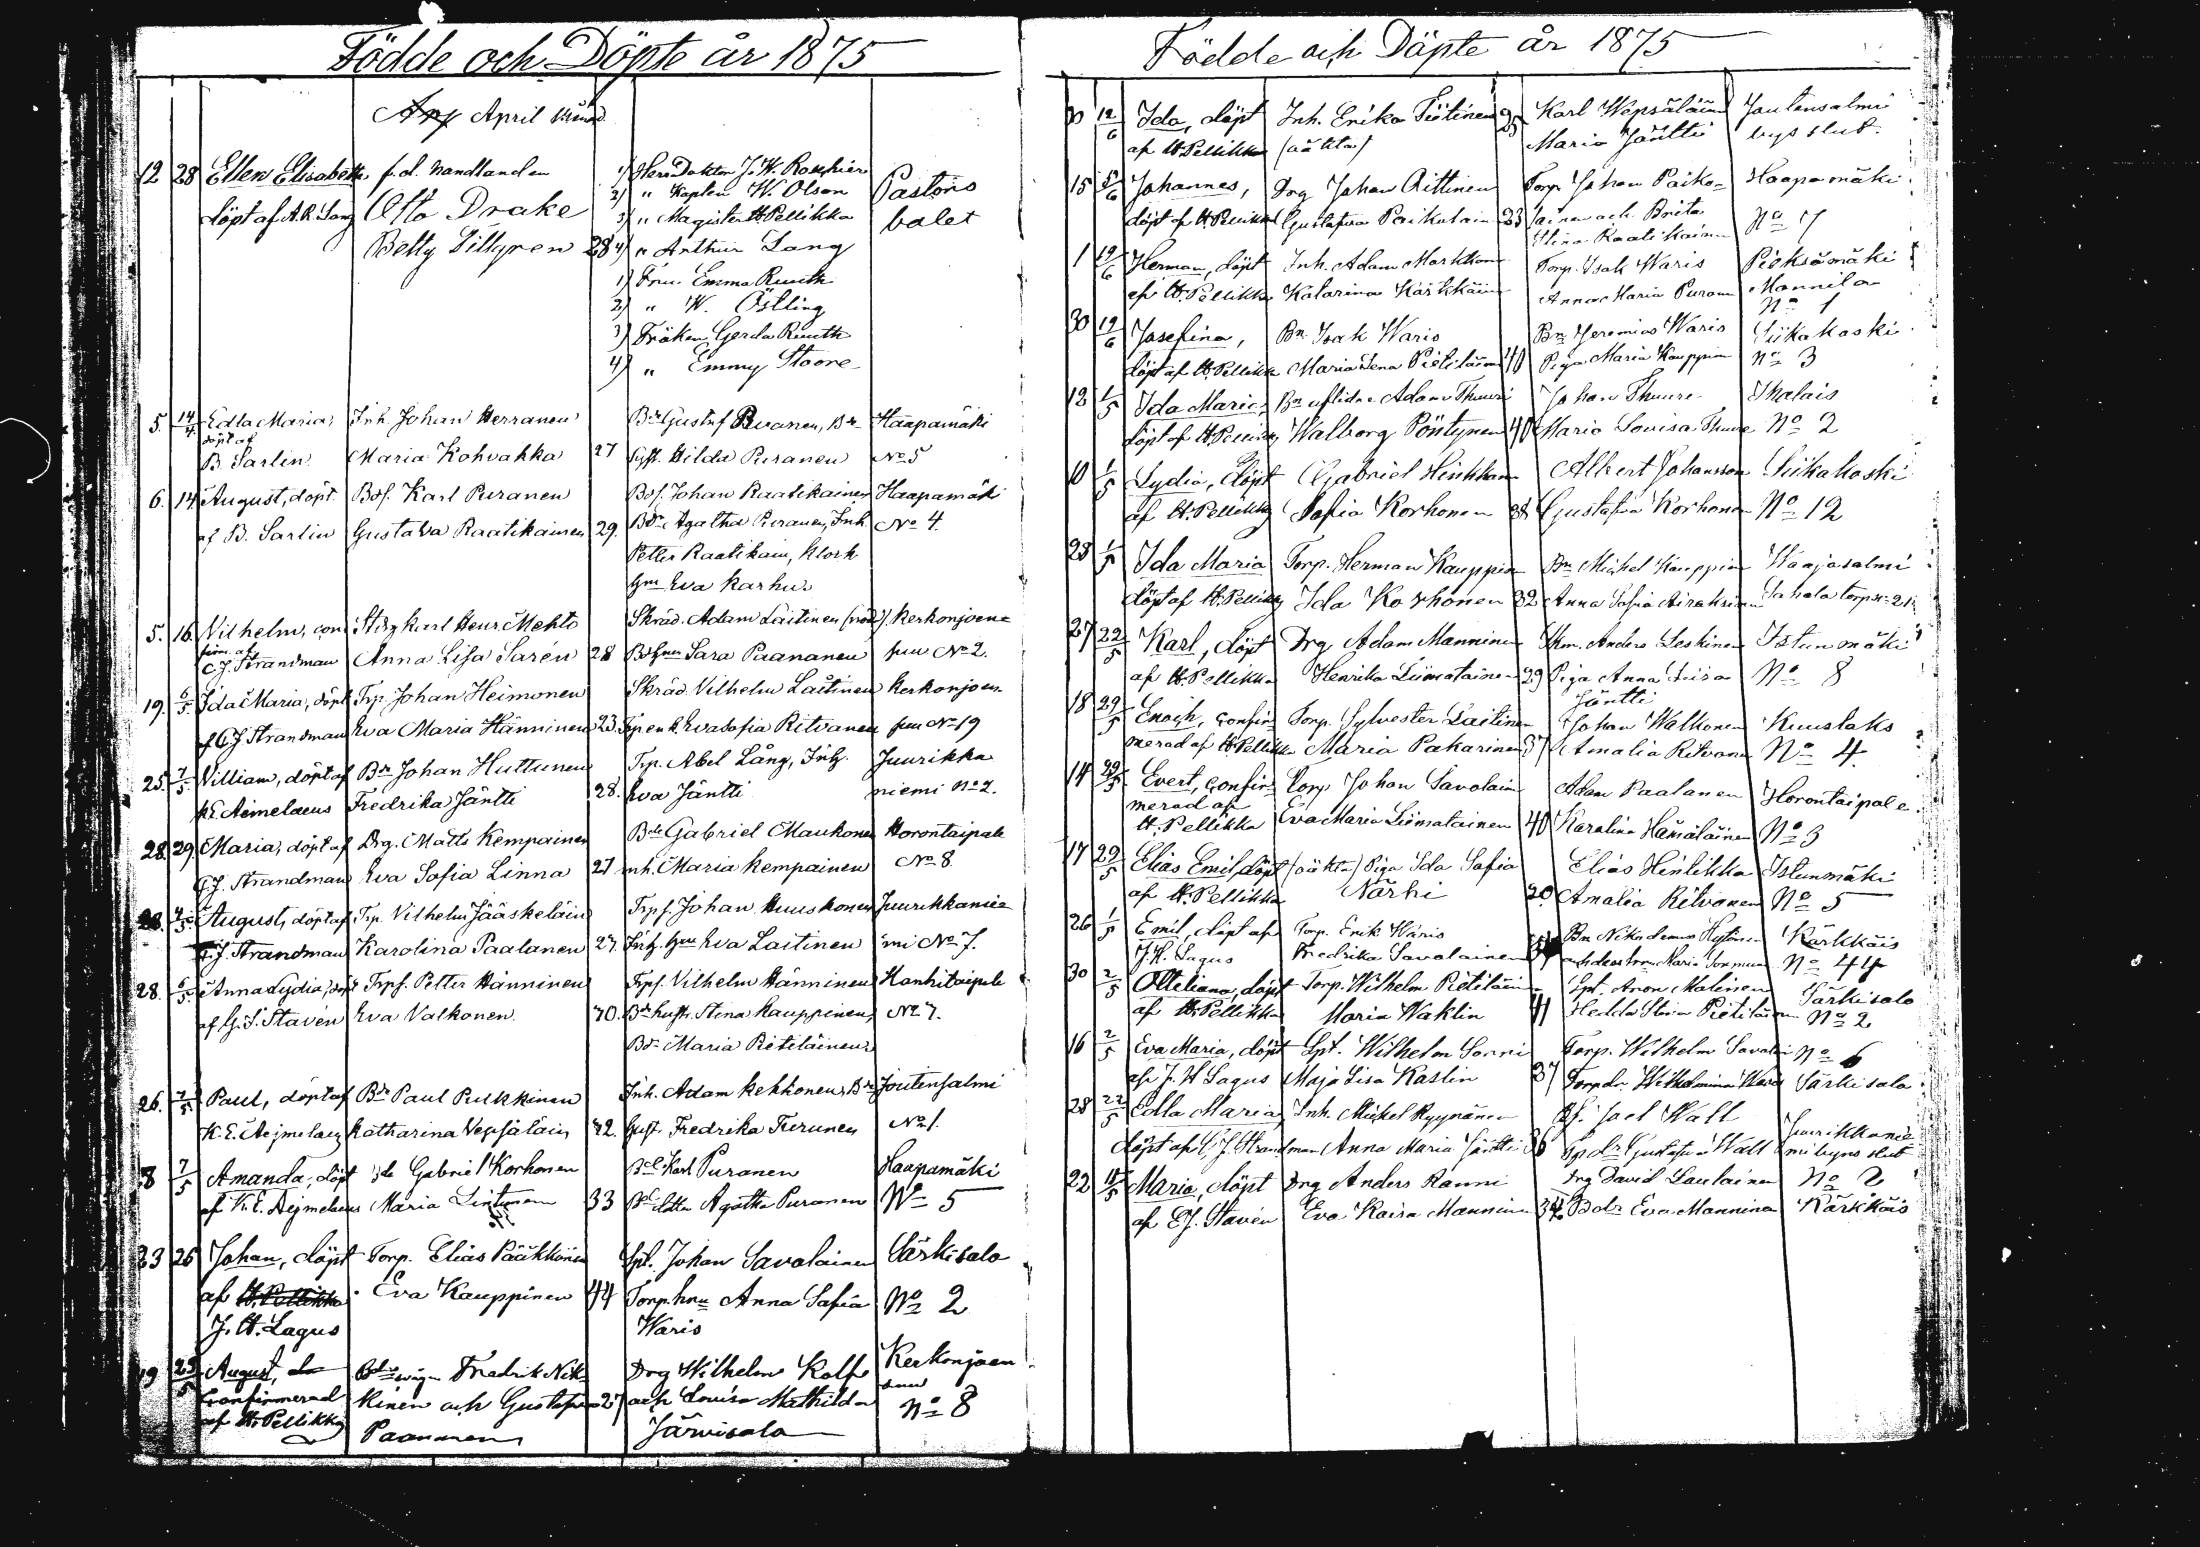 Födde och Döpte år 1875
April månad
12 28 Ellen Elisabeth f. d. handlanden 1) Herr Doktor J. W. Roschier
döpt af A. R. Lang Otto Drake 2) " Kapten W. Olson Pastors
3) " Magister H. Pellikka bolet
Betty Tillgren 28 4) " Arthur Lang
1) Fru Emma Ruuth
2) " W. Östling
3) Fröken Gerda Ruuth
4) " Emmy Stoore
5. 14/4 Edla Maria, Inh. Johan Herranen Bdr Gustaf Puranen, Bdr Haapamäki
döpt af
B. Sarlin Maria Kohvakka 27 Hilda Puranen No 5
6. 14 August, döpt Bdf. Karl Puranen Bdf. Johan Raatikainen Haapamäki
af B. Sarlin Gustava Raatikainen 29. Bdr Agatha Puranen, Inh. No 4.
Petter Raatikain, klock
hm Eva Karhu
5. 16. Vilhelm, con Karl Henr. Mehto Skräd. Adam Laitinen Kerkonjoen
firm. af
C. J. Strandman Anna Lisa Saren 28 Sara Paananen suu No 2.
19. 6/5 Ida Maria, döpt Trp. Johan Heimonen Skräd. Vilhelm Laitinen Kerkonjoen
af C J Strandman Eva Maria Hänninen 23. Eva Sofia Ritvanen suu No 19
25. 7/5 Villiam, döpt af Bdr Johan Huttunen Trp. Abel Lång, Inhg. Juurikka
K. E. Aeimelaeus Fredrika Jäntti 28. Eva Jäntti niemi No 2.
28. 29. Maria, döpt af Drg. Matts Kempainen Bdr Gabriel Maukonen Horontaipale
C. J. Strandman Eva Sofia Linna 27 Inh. Maria Kempainen No 8
28. 4/5 August, döpt af Trp. Vilhelm Jääskeläin Trpf. Johan Huuskonen Juurikkanie
C. J. Strandman Karolina Paalanen 27. Eva Laitinen mi No 7.
28. 6/5 Anna Lydia, döpt Trpf. Petter Hänninen Trpf. Vilhelm Hänninen Hanhitaipale
af G. S. Stavén Eva Valkonen. 40. Stina Kauppinen, No 7.
Bdr Maria Pitiläinen
26. 7/5 Paul, döpt af Bdr Paul Pukkinen Inh. Adam Kekkonen, Bdr Joutensalmi
K. E. Aejmelaeus Katharina Vepsäläin 42. Fredrika Turunen No 1.
8 7/5 Amanda, döpt Gabriel Korhonen Karl Puranen Haapamäki
af K. E. Aejmelaeus Maria Lintunen 33 Agatha Puranen No 5
23 26 Johan, döpt Torp. Elias Pääkkönen Spt. Johan Savolainen Särkisalo
af H. Pellikka Eva Kauppinen 44 Torp. hm Anna Sofia No 2
J. H. Lagus Waris
19 23/5 August, Fredrik Nik Drg Wilhelm Rolf Kerkonjoen
confirmerad kinen och Gustafva 27 och Lovisa Mathilda suu
af H. Pellikka Paananen Järvisalo No 8
Födde och Döpte år 1875
30 12/6 Ida, döpt Inh. Erika Tiitinen 25 Karl Wepsäläinen Joutensalmi
af H. Pellikka (oäkta) Maria Jäntti bys slut.
15 5/6 Johannes, Drg Johan Rittinen Torp. Johan Paiko- Haapamäki
döpt af H. Pellikka Gustafva Paikolain 33 lainen och Brita No 7
Stina Raatikainen
1 19/6 Herman, döpt Inh. Adam Markkan Torp. Isak Waris Pieksämäki
af H. Pellikka Katarina Kärkkäin Anna Maria Puran Mannila
No 1
30 19/6 Josefina, Bn. Isak Waris Bn Jeremias Waris Siikakoski
döpt af H. Pellikka Maria Lena Pietiläinen 40 Piga Maria Kauppin No 3
12 1/5 Ida Maria, Bn aflidne Adam Thuure Johan Thuure Ihalais
döpt af H. Pellikka Walborg Pöntynen 40 Maria Lovisa Thuure No 2
10 1/5 Lydia, döpt Gabriel Hinkkan Albert Johansson Siikakoski
af H. Pellikka Sofia Korhonen 38 Gustafva Korhonen No 12
28 1/5 Ida Maria Torp. Herman Kauppin Bn Mickel Kauppin Haajasalmi
döpt af H. Pellikka Ida Korhonen 32 Anna Sofia Airaksinen Sahala torp N: 21.
27 22/5 Karl, döpt Drg Adam Manninen Anders Leskinen Istunmäki
af H. Pellikka Henrika Liimatainen 29 Piga Anna Lisa No 8
Jäntti
18 29/5 Enoch, confir Torp. Sylvester Laitinen Johan Walkonen Kuuslaks
merad af H. Pellikka Maria Pakarinen 37 Amalia Ritvanen No 4.
14 29/5 Evert, confir Torp. Johan Savolain Adam Paalanen Horontaipale
merad af
H. Pellikka Eva Maria Liimatainen 40 Karolina Hämäläinen No 3
17 29/5 Elias Emil, döpt (oäkta) Piga Ida Sofia Elias Hintikka Istunmäki
af H. Pellikka Närhi 20 Amalia Ritvanen No 5
26 1/5 Emil, döpt af Torp. Erik Waris Bn Nikodemus Hytönen Kärkkäis
J. H. Lagus Fredrika Savolainen Maria No 44
30 2/5 Ottiliana, döpt Torp. Wilhelm Pietiläin Spt. Aron Malinen Särkisalo
af H. Pellikka Maria Waklin 41 Hedda Stina Pietiläinen No 2
16 2/5 Eva Maria, döpt Spt. Wilhelm Sorri Torp. Wilhelm Savolain No 6
af J. H Lagus Maja Lisa Kaslin 37 Torpdr Wilhelmina Särkisalo
28 22/5 Edla Maria, Inh. Mickel Ryynänen Joel Wall Juurikkanie
döpt af C. J. Strandman Anna Maria Jäntti 36 Gustafva Wall mi byns slut
22 11/5 Maria, döpt Drg Anders Ranni Drg David Laulainen No 2
af E. J. Stavén Eva Kaisa Manninen 34 Bdr Eva Manninen Kärkkäis